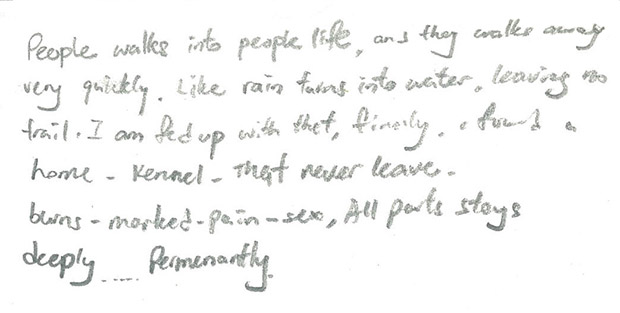 People walks into people life, and they walks away
very quickly. Like rain turns into water, leaving no
trail. I am fed up with that, finally, i found a
home - Kennel - That never leave.
burns - marked - pain - sex, All parts stays
deeply ..... Permenantly.